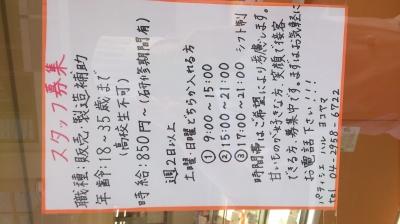 スタッフ募集
職種:販売・製造補助
年齢:18~35歳まで
(高校生不可)
時給:850円~(研修期間有)
週2日以上
土曜・日曜どちらか入れる方
① 9:00~15:00
② 15:00~21:00
③ 17:00~21:00 シフト制
時間帯はご希望により考慮します。
甘いものが大好きな方、笑顔で接客
できる方、募集中です。まずはお気軽に
お電話下さい!!!
パティシェ ハルイ ヨコヤマ
tel 04-2958-6722